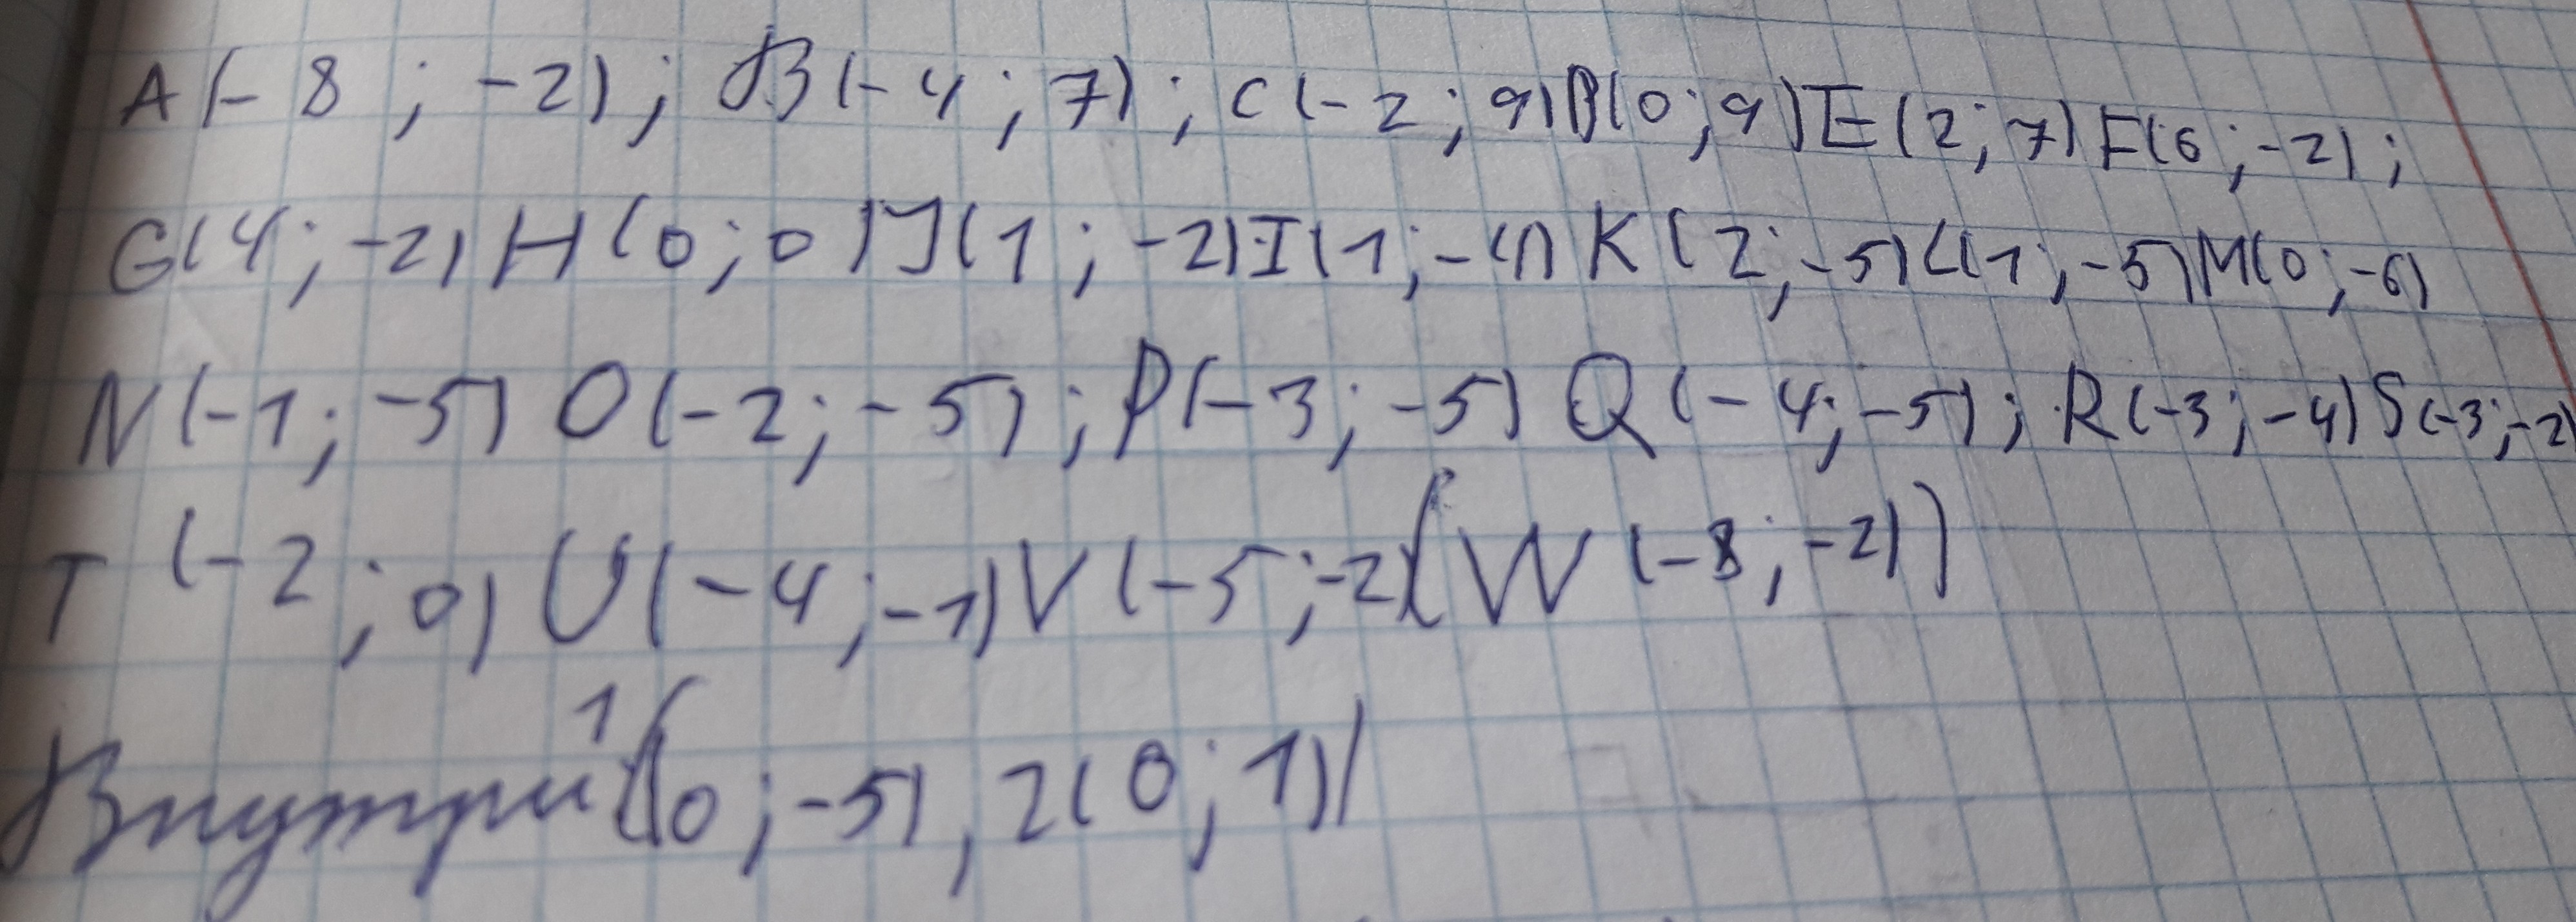 A(-8; -2); B(-4; 7); C(-2; 9)D(0; 9)E(2; 7)F(6; -2);
G(4; -2)H(0; 0)J(1; -2)I(1; -4)K(2; -5)L(1; -5)M(0; -6)
N(-1; -5) O(-2; -5); P(-3; -5) Q(-4; -5); R(-3; -4) S(-3; -2)
T(-2; 0) U(-4; -1) V(-5; -2)(W(-8; -2))
Внутри 1(0; -5), 2(0; 1)